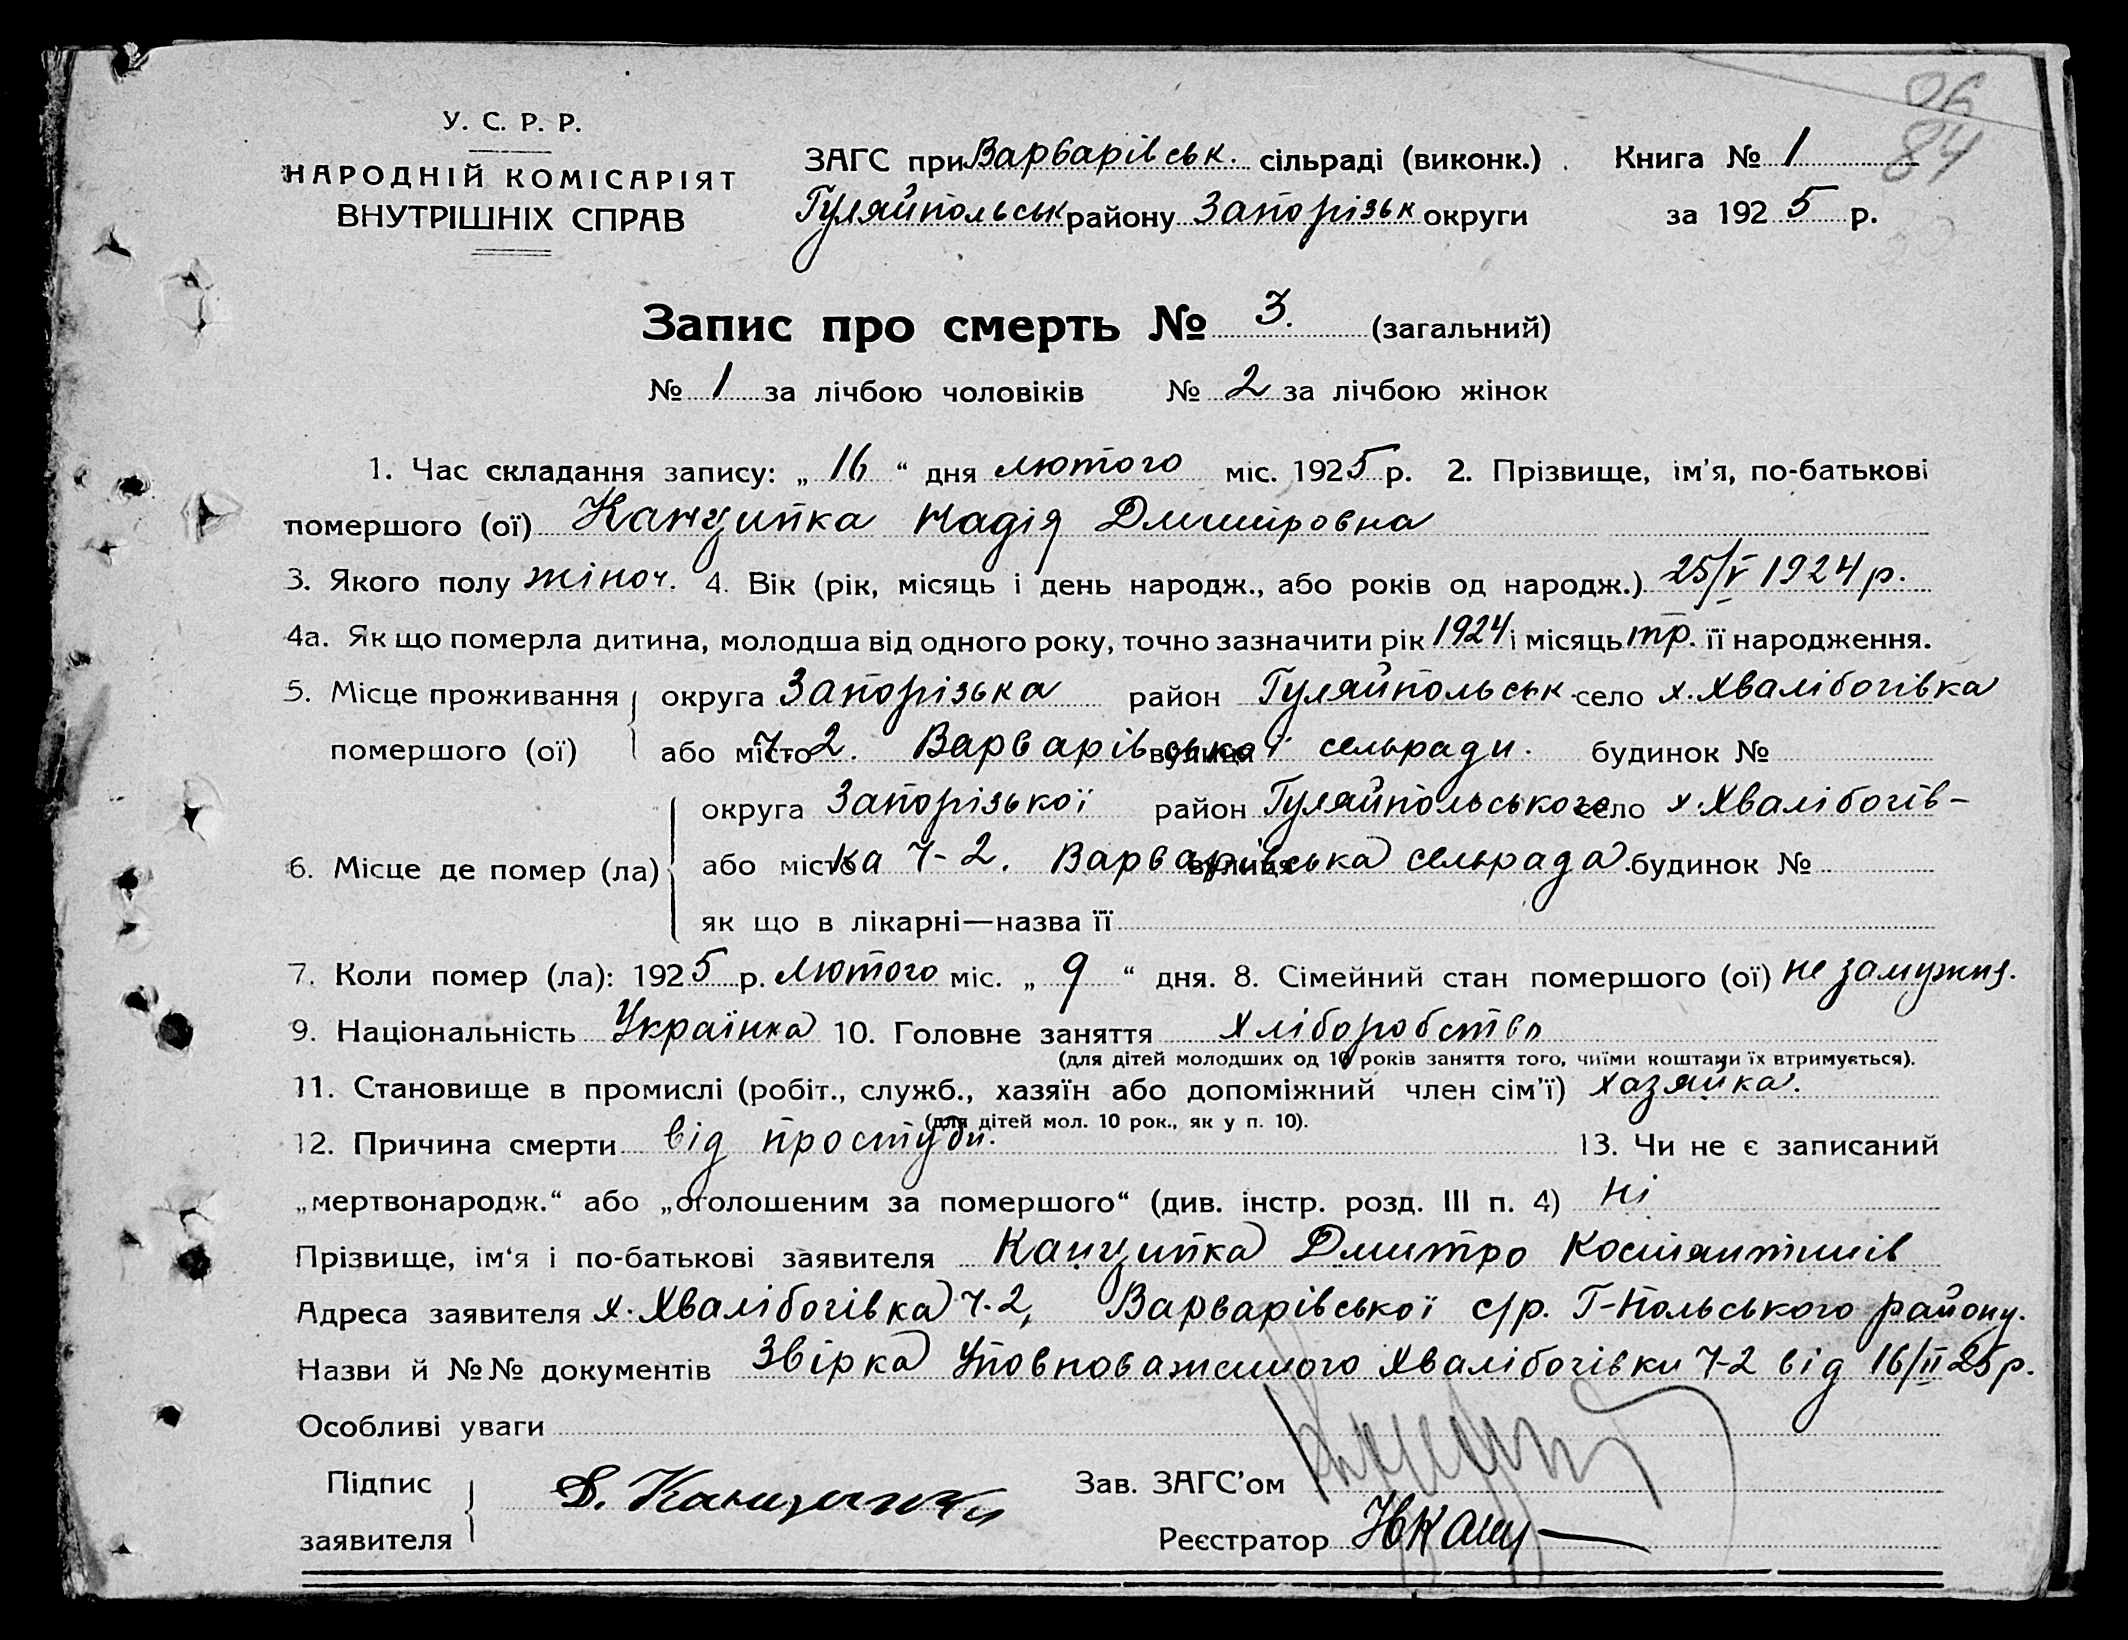 86
84
У. С. Р. Р.
НАРОДНІЙ КОМІСАРІЯТ
ВНУТРІШНІХ СПРАВ
ЗАГС при Варварівськ. сільраді (виконк.) Книга № 1
Гуляйпольськ району Запорізьк округи за 1925 р.
Запис про смерть № 3. (загальний)
№ 1 за лічбою чоловіків № 2 за лічбою жінок
1. Час складання запису: „ 16 “ дня лютого міс. 1925 р. 2. Прізвище, ім’я, по-батькові
помершого (ої) Канципка Надія Дмитровна
3. Якого полу жіноч. 4. Вік (рік, місяць і день народж., або років од народж.) 25/V 1924 р.
4а. Як що померла дитина, молодша від одного року, точно зазначити рік 1924 і місяць тр. її народження.
5. Місце проживання округа Запорізька район Гуляйпольськ село х. Хвалібогівка
помершого (ої) або місто ч. 2. Варварівської вулиця сельради. будинок №
округа Запорізької район Гуляйпольського село х. Хвалібогів-
6. Місце де помер (ла) або місто ка ч-2. Варварівська вулиця сельрада. будинок №
як що в лікарні—назва її
7. Коли помер (ла): 1925 р. Лютого міс. „ 9 “ дня. 8. Сімейний стан помершого (ої) не замужня.
9. Національність Українка 10. Головне заняття хліборобство
(для дітей молодших од 10 років заняття того, чиїми коштами їх втримується).
11. Становище в промислі (робіт., служб., хазяїн або допоміжний член сім’ї) хазяйка.
(для дітей мол. 10 рок., як у п. 10).
12. Причина смерти від простуди. 13. Чи не є записаний
„мертвонародж.“ або „оголошеним за помершого“ (див. інстр. розд. III п. 4) ні
Прізвище, ім‘я і по-батькові заявителя Канципка Дмитро Костянтинів
Адреса заявителя х. Хвалібогівка ч. 2, Варварівської с/р. Г-Польського району.
Назви й №№ документів Звірка Уповноваженного Хвалібогівки ч-2 від 16/II 25 р.
Особливі уваги
Підпис Зав. ЗАГС’ом
заявителя Д. Канципка
Реєстратор